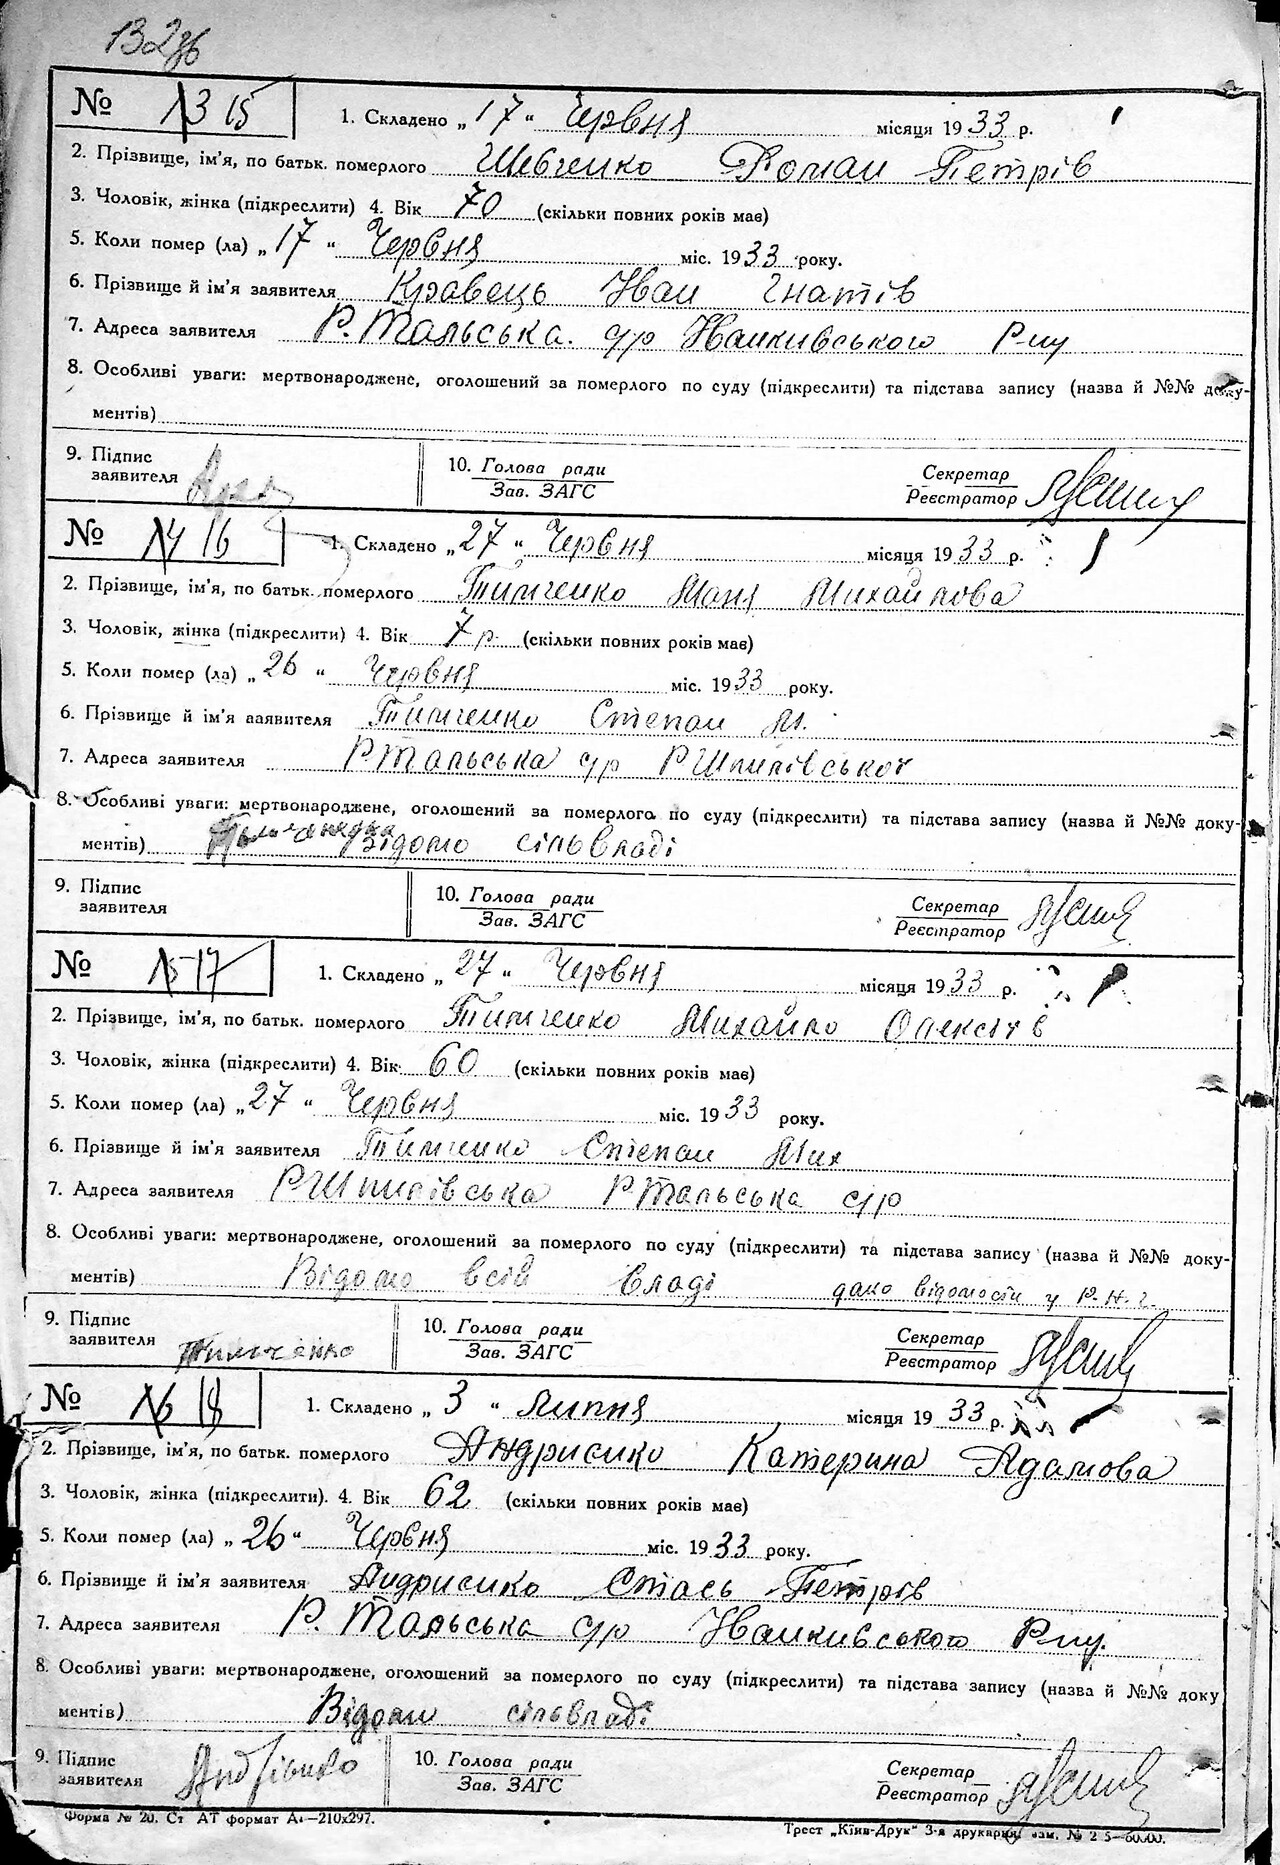 132зв
№ 13 15 1. Складено „17“ Червня місяця 1933 р.
2. Прізвище, ім'я, по батьк. померлого Шевченко Роман Петрів
3. Чоловік, жінка (підкреслити) 4. Вік 70 (скільки повних років має)
5. Коли помер (ла) „17“ Червня міс. 1933 року.
6. Прізвище й ім'я заявителя Кравець Иван Гнатів
7. Адреса заявителя Р. Тальська. с/р Иванкивського Р-ну
8. Особливі уваги: мертвонароджене, оголошений за померлого по суду (підкреслити) та підстава запису (назва й №№ доку-
ментів)
9. Підпис заявителя
10. Голова ради
Зав. ЗАГС
Секретар
Реєстратор
№ 14 16 1. Складено „27“ Червня місяця 1933 р.
2. Прізвище, ім'я, по батьк. померлого Тимченко Маня Михайлова
3. Чоловік, жінка (підкреслити) 4. Вік 7 р. (скільки повних років має)
5. Коли помер (ла) „26“ Червня міс. 1933 року.
6. Прізвище й ім'я заявителя Тимченко Степан М.
7. Адреса заявителя Р.Тальська с/р Р Шпилівської
8. Особливі уваги: мертвонароджене, оголошений за померлого по суду (підкреслити) та підстава запису (назва й №№ доку-
ментів) Відомо сільвладі
9. Підпис заявителя
10. Голова ради
Зав. ЗАГС
Секретар
Реєстратор
№ 15 17 1. Складено „27“ Червня місяця 1933 р.
2. Прізвище, ім'я, по батьк. померлого Тимченко Михайло Олексіїв
3. Чоловік, жінка (підкреслити) 4. Вік 60 (скільки повних років має)
5. Коли помер (ла) „27“ Червня міс. 1933 року.
6. Прізвище й ім'я заявителя Тимченко Степан Мих
7. Адреса заявителя Р Шпилівська Р.Тальська с/р
8. Особливі уваги: мертвонароджене, оголошений за померлого по суду (підкреслити) та підстава запису (назва й №№ доку-
ментів) Відомо всій владі дано відомости у Р.Н.Г.
9. Підпис заявителя Тимченко
10. Голова ради
Зав. ЗАГС
Секретар
Реєстратор
№ 16 18 1. Складено „3“ липня місяця 1933 р.
2. Прізвище, ім'я, по батьк. померлого Андрисико Катерина Адамова
3. Чоловік, жінка (підкреслити). 4. Вік 62 (скільки повних років має)
5. Коли помер (ла) „26“ Червня міс. 1933 року.
6. Прізвище й ім'я заявителя Андрисико Стась Петрів
7. Адреса заявителя Р. Тальська с/р Иванкивського Р-ну.
8. Особливі уваги: мертвонароджене, оголошений за померлого по суду (підкреслити) та підстава запису (назва й №№ доку
ментів) Відомо сільвладі
9. Підпис заявителя
10. Голова ради
Зав. ЗАГС
Секретар
Реєстратор
Форма № 20. Ст АТ формат А4—210x297.
Трест „Київ-Друк“ 3-я друкарня